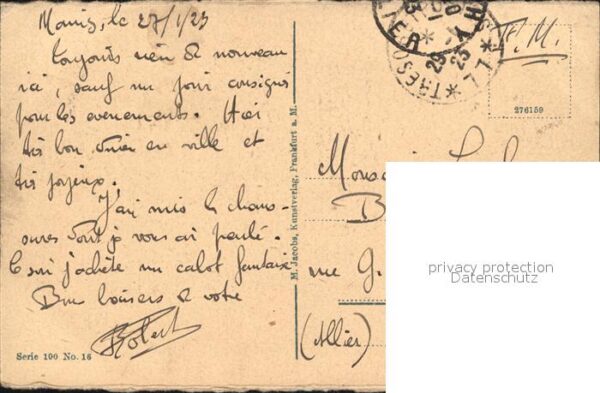 le 27/1/23
toujours rien de nouveau
ici, sauf un jour consigné
pour les evenements. Hier
très bon dîner en ville et
très joyeux.
J'ai mis le chaus-
sures dont je vous ai parlé.
Ce soir j'achète un calot fantaisie
Bons baisers de votre
Robert
Serie 190 No. 16
M. Jacobs, Kunstverlag, Frankfurt a. M.
F. M.
276159
Monsieur
B
rue G.
(Allier)
privacy protection
Datenschutz